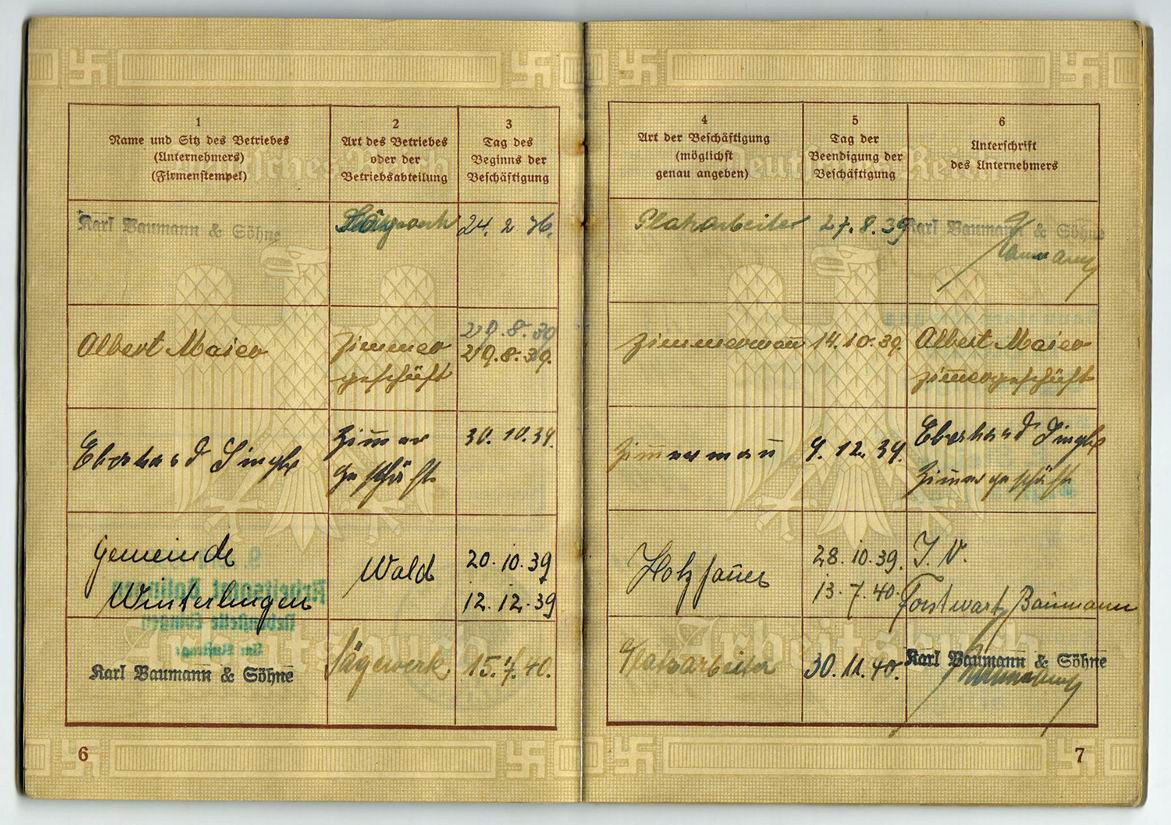 1
Name und Sitz des Betriebes
(Unternehmers)
(Firmenstempel)
2
Art des Betriebes
oder der
Betriebsabteilung
3
Tag des
Beginns der
Beschäftigung
4
Art der Beschäftigung
(möglichst
genau angeben)
5
Tag der
Beendigung der
Beschäftigung
6
Unterschrift
des Unternehmers
Deutsches Reich
Deutsches Reich
Karl Baumann & Söhne
Sägewerk
24. 2
Platzarbeiter
27.8.39
Karl Baumann & Söhne
Baumann
Albert Maier
Zimmer
geschäft
29.8.39
29.8.39.
Zimmermann
14.10.39
Albert Maier
Zimmergeschäft
Eberhard
Zimmer
geschäft
30.10.39.
Zimmermann
9.12.39.
Eberhard
Zimmergeschäft
Gemeinde
Winterlingen
Wald
20.10.39
12.12.39
Holzhauer
28.10.39.
13.7.40.
I. V.
Forstwart Baumann
Arbeitsamt Balingen
Nebenstelle Ebingen
Im Auftrage
Arbeitsbuch
Arbeitsbuch
Karl Baumann & Söhne
Sägewerk
15.7.40.
Platzarbeiter
30.11.40.
Karl Baumann & Söhne
6
7